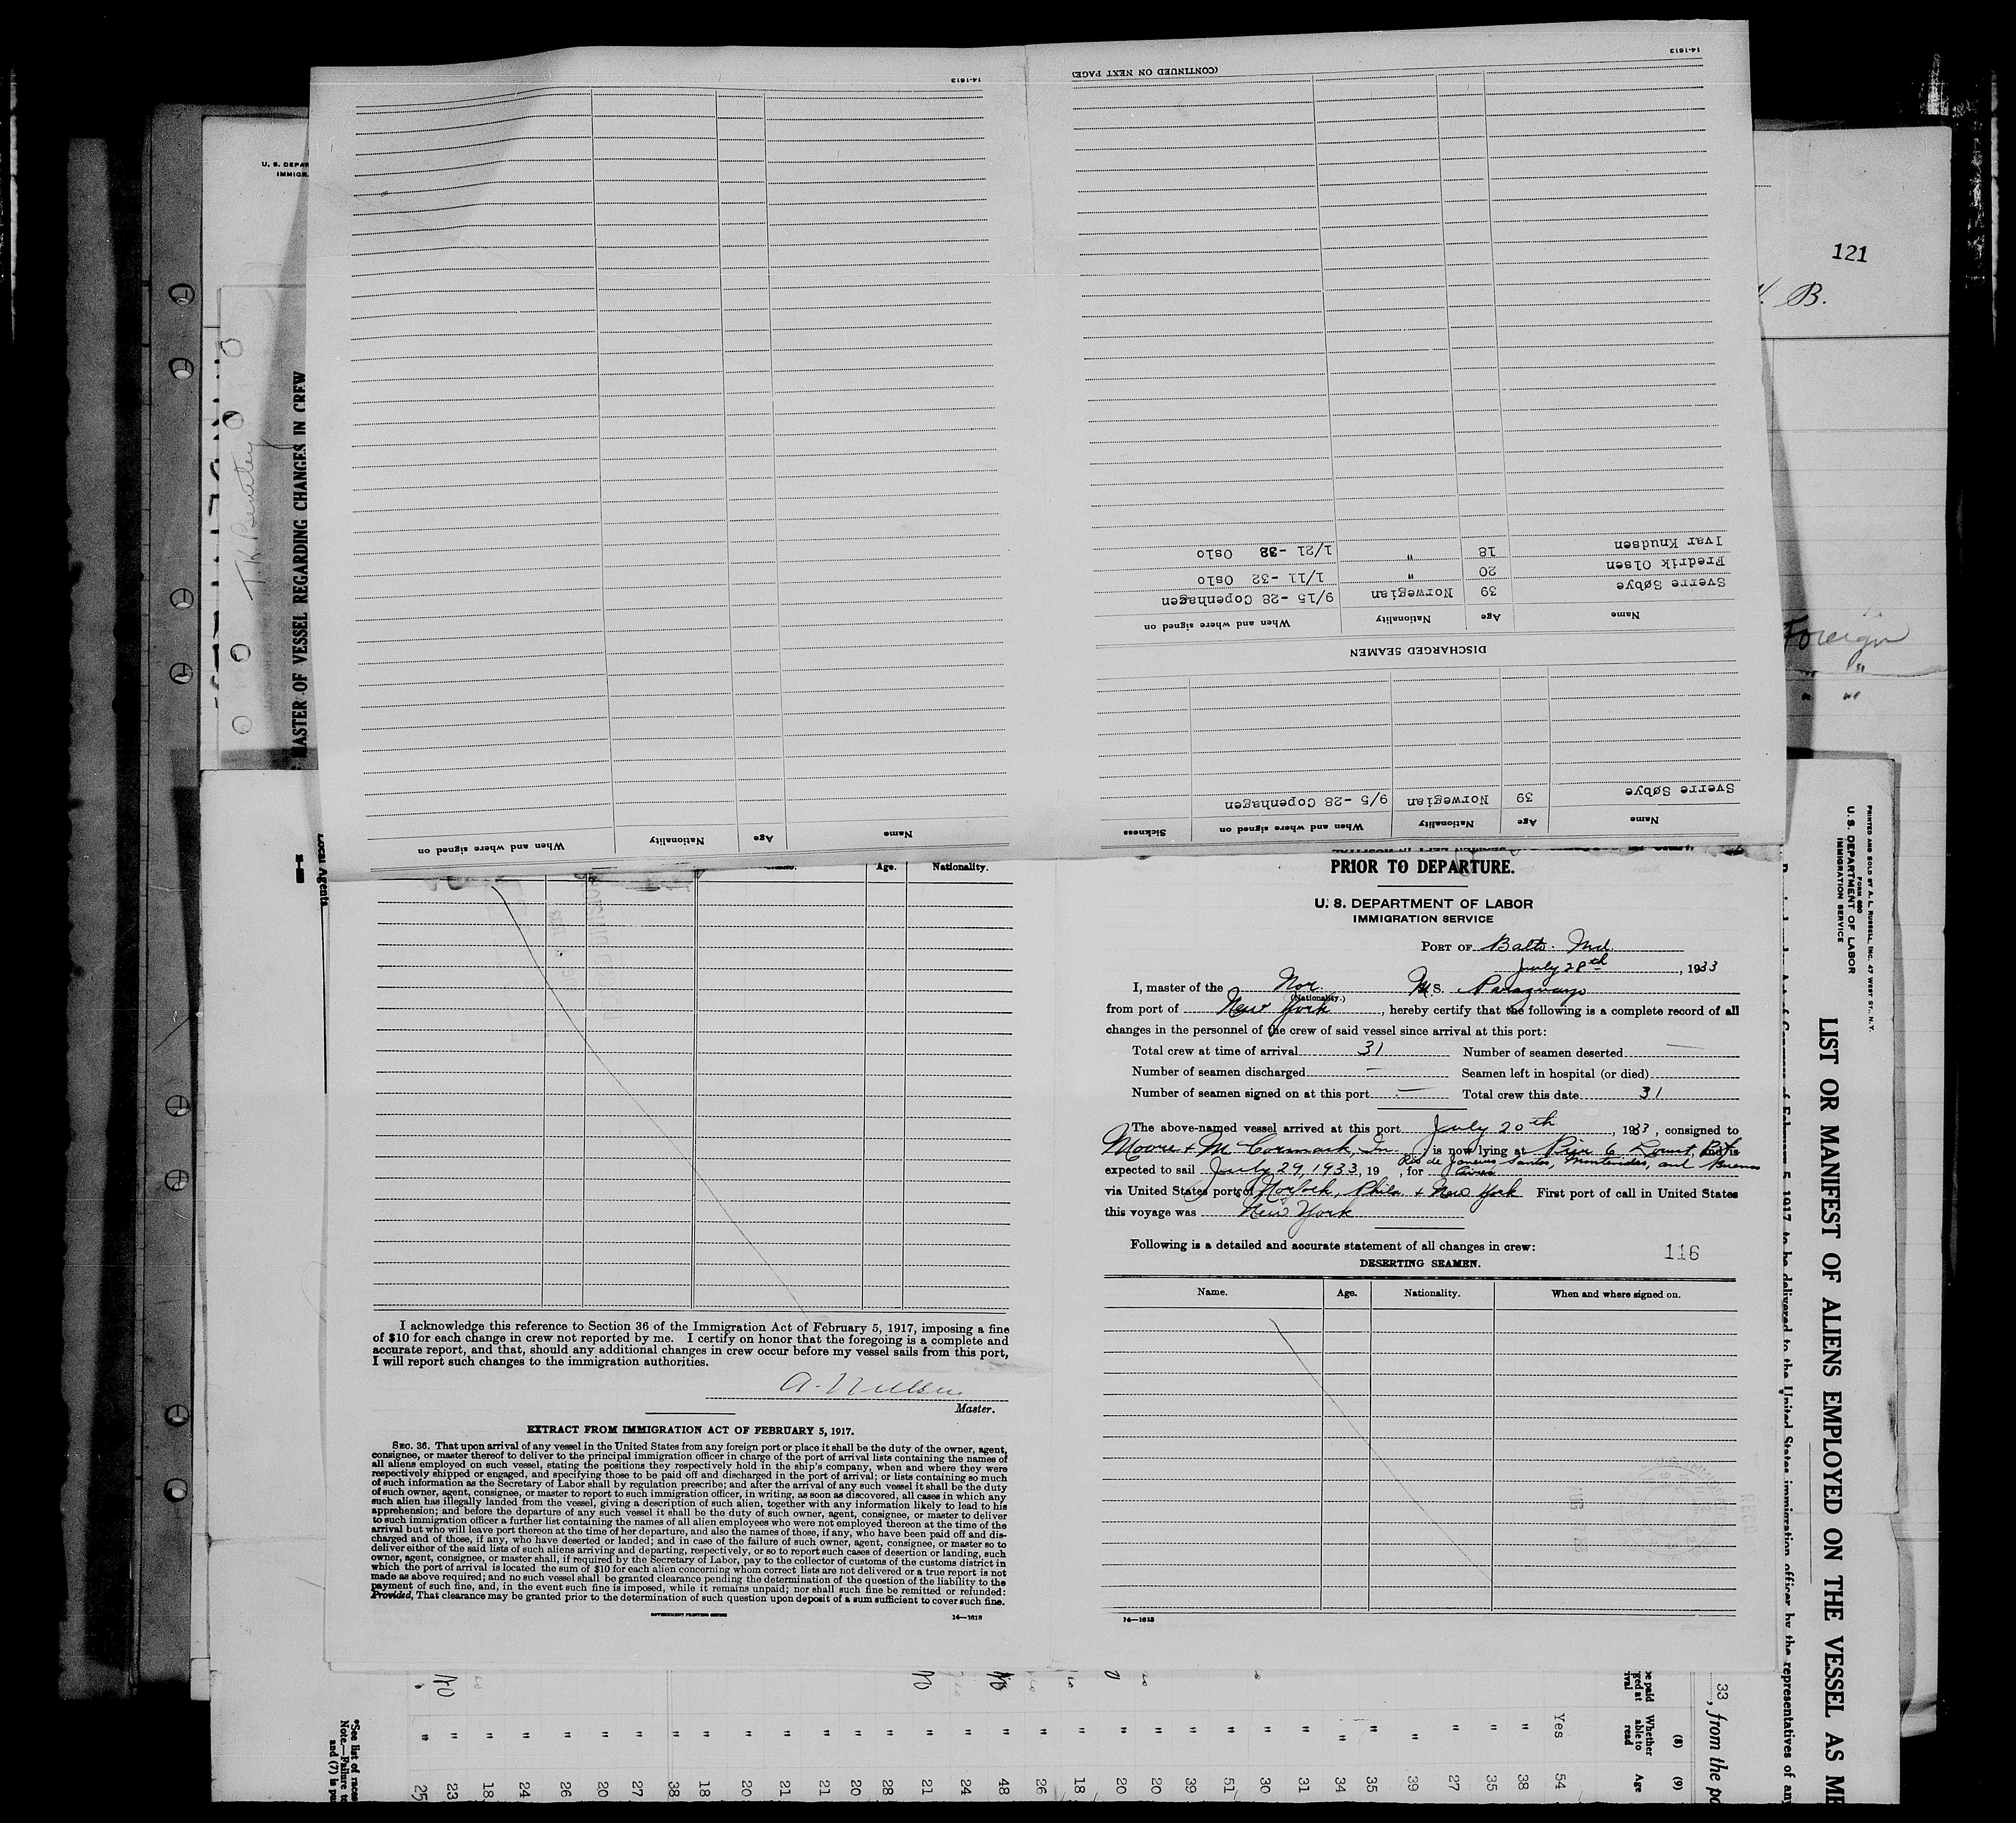 14-1613
(CONTINUED ON NEXT PAGE)
14-1613
121
B.
Foreign
"
" "
U. S. DEPAR
IMMIGR
MASTER OF VESSEL REGARDING CHANGES IN CREW
Local Agents
Name Age Nationality When and where signed on Sickness
Sverre Søbye 39 Norwegian 9/5 -28 Copenhagen
DISCHARGED SEAMEN
Name Age Nationality When and where signed on
Sverre Søbye 39 Norwegian 9/15 -28 Copenhagen
Fredrik Olsen 20 " 1/11 -32 Oslo
Ivar Knudsen 18 " 1/21 -33 Oslo
Name Age Nationality When and where signed on
Age. Nationality.
I acknowledge this reference to Section 36 of the Immigration Act of February 5, 1917, imposing a fine
of $10 for each change in crew not reported by me. I certify on honor that the foregoing is a complete and
accurate report, and that, should any additional changes in crew occur before my vessel sails from this port,
I will report such changes to the immigration authorities.
A. Nielsen
Master.
EXTRACT FROM IMMIGRATION ACT OF FEBRUARY 5, 1917.
SEC. 36. That upon arrival of any vessel in the United States from any foreign port or place it shall be the duty of the owner, agent,
consignee, or master thereof to deliver to the principal immigration officer in charge of the port of arrival lists containing the names of
all aliens employed on such vessel, stating the positions they respectively hold in the ship's company, when and where they were
respectively shipped or engaged, and specifying those to be paid off and discharged in the port of arrival; or lists containing so much
of such information as the Secretary of Labor shall by regulation prescribe; and after the arrival of any such vessel it shall be the duty
of such owner, agent, consignee, or master to report to such immigration officer, in writing, as soon as discovered, all cases in which any
such alien has illegally landed from the vessel, giving a description of such alien, together with any information likely to lead to his
apprehension; and before the departure of any such vessel it shall be the duty of such owner, agent, consignee, or master to deliver
to such immigration officer a further list containing the names of all alien employees who were not employed thereon at the time of the
arrival but who will leave port thereon at the time of her departure, and also the names of those, if any, who have been paid off and dis-
charged and of those, if any, who have deserted or landed; and in case of the failure of such owner, agent, consignee, or master so to
deliver either of the said lists of such aliens arriving and departing, respectively, or so to report such cases of desertion or landing, such
owner, agent, consignee, or master shall, if required by the Secretary of Labor, pay to the collector of customs of the customs district in
which the port of arrival is located the sum of $10 for each alien concerning whom correct lists are not delivered or a true report is not
made as above required; and no such vessel shall be granted clearance pending the determination of the question of the liability to the
payment of such fine, and, in the event such fine is imposed, while it remains unpaid; nor shall such fine be remitted or refunded:
Provided, That clearance may be granted prior to the determination of such question upon deposit of a sum sufficient to cover such fine.
GOVERNMENT PRINTING OFFICE 14—1613
PRIOR TO DEPARTURE.
U. S. DEPARTMENT OF LABOR
IMMIGRATION SERVICE
PORT OF Balto. Md.
July 28th, 1933
I, master of the Nor. M.S. Paraguay
(Nationality.)
from port of New York, hereby certify that the following is a complete record of all
changes in the personnel of the crew of said vessel since arrival at this port:
Total crew at time of arrival 31 Number of seamen deserted —
Number of seamen discharged — Seamen left in hospital (or died)
Number of seamen signed on at this port — Total crew this date 31
The above-named vessel arrived at this port July 20th, 1933, consigned to
Moore & McCormack, In , is now lying at Pier 6 Locust Pt, and is
expected to sail July 29, 1933, 19 , for Rio de Janeiro, Santos, Montevideo, and Buenos Aires
via United States ports of Norfolk, Phila. + New York First port of call in United States
this voyage was New York
Following is a detailed and accurate statement of all changes in crew:
116
DESERTING SEAMEN.
Name. Age. Nationality. When and where signed on.
14—1613
PRINTED AND SOLD BY A. L. RUSSELL, INC. 47 WEST ST., N. Y.
FORM 680
U. S. DEPARTMENT OF LABOR
IMMIGRATION SERVICE
LIST OR MANIFEST OF ALIENS EMPLOYED ON THE VESSEL AS ME
Act of Congress of February 5, 1917, to be delivered to the United States immigration officer by the representatives of any
33, from the po
(8) (9)
Whether able to read Age
Yes 54
" 38
" 35
" 27
" 39
" 35
" 34
" 31
" 30
" 51
" 39
" 20
" 20
" 18
" 26
" 48
" 24
" 21
" 28
" 20
" 21
" 21
" 20
" 18
" 38
" 27
" 20
" 26
" 24
" 18
" 23
" 25
*See list of races
Note.—Failure to
and (7) is pu